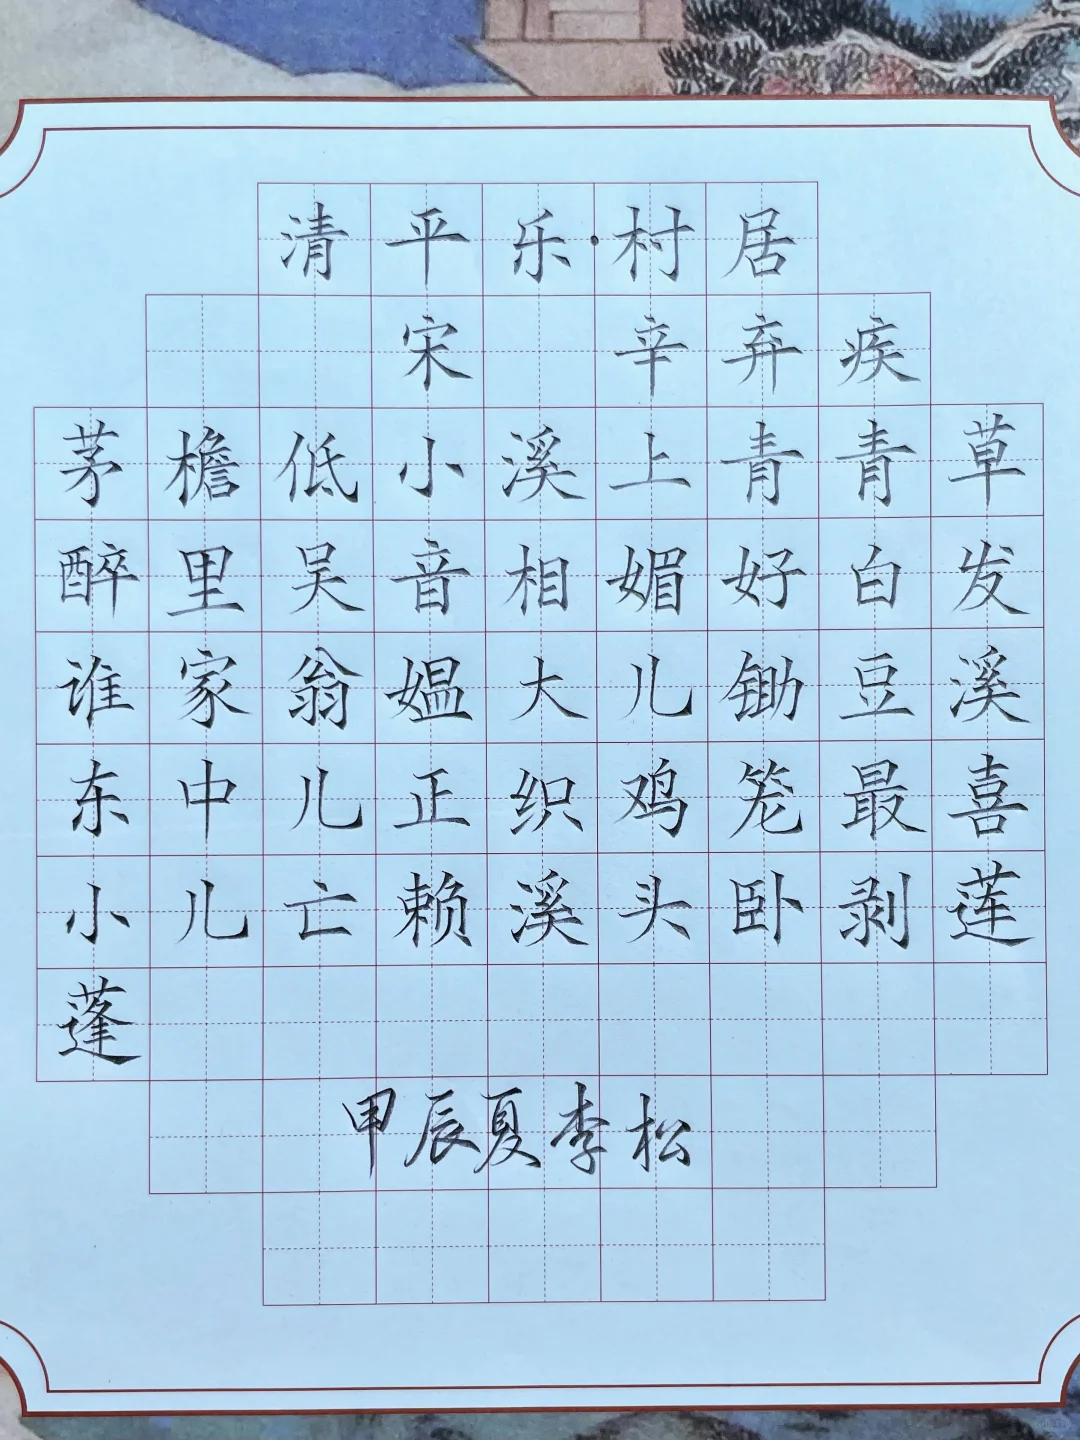 清平乐·村居
宋 辛弃疾
茅檐低小溪上青青草
醉里吴音相媚好白发
谁家翁媪大儿锄豆溪
东中儿正织鸡笼最喜
小儿亡赖溪头卧剥莲
蓬
甲辰夏李松